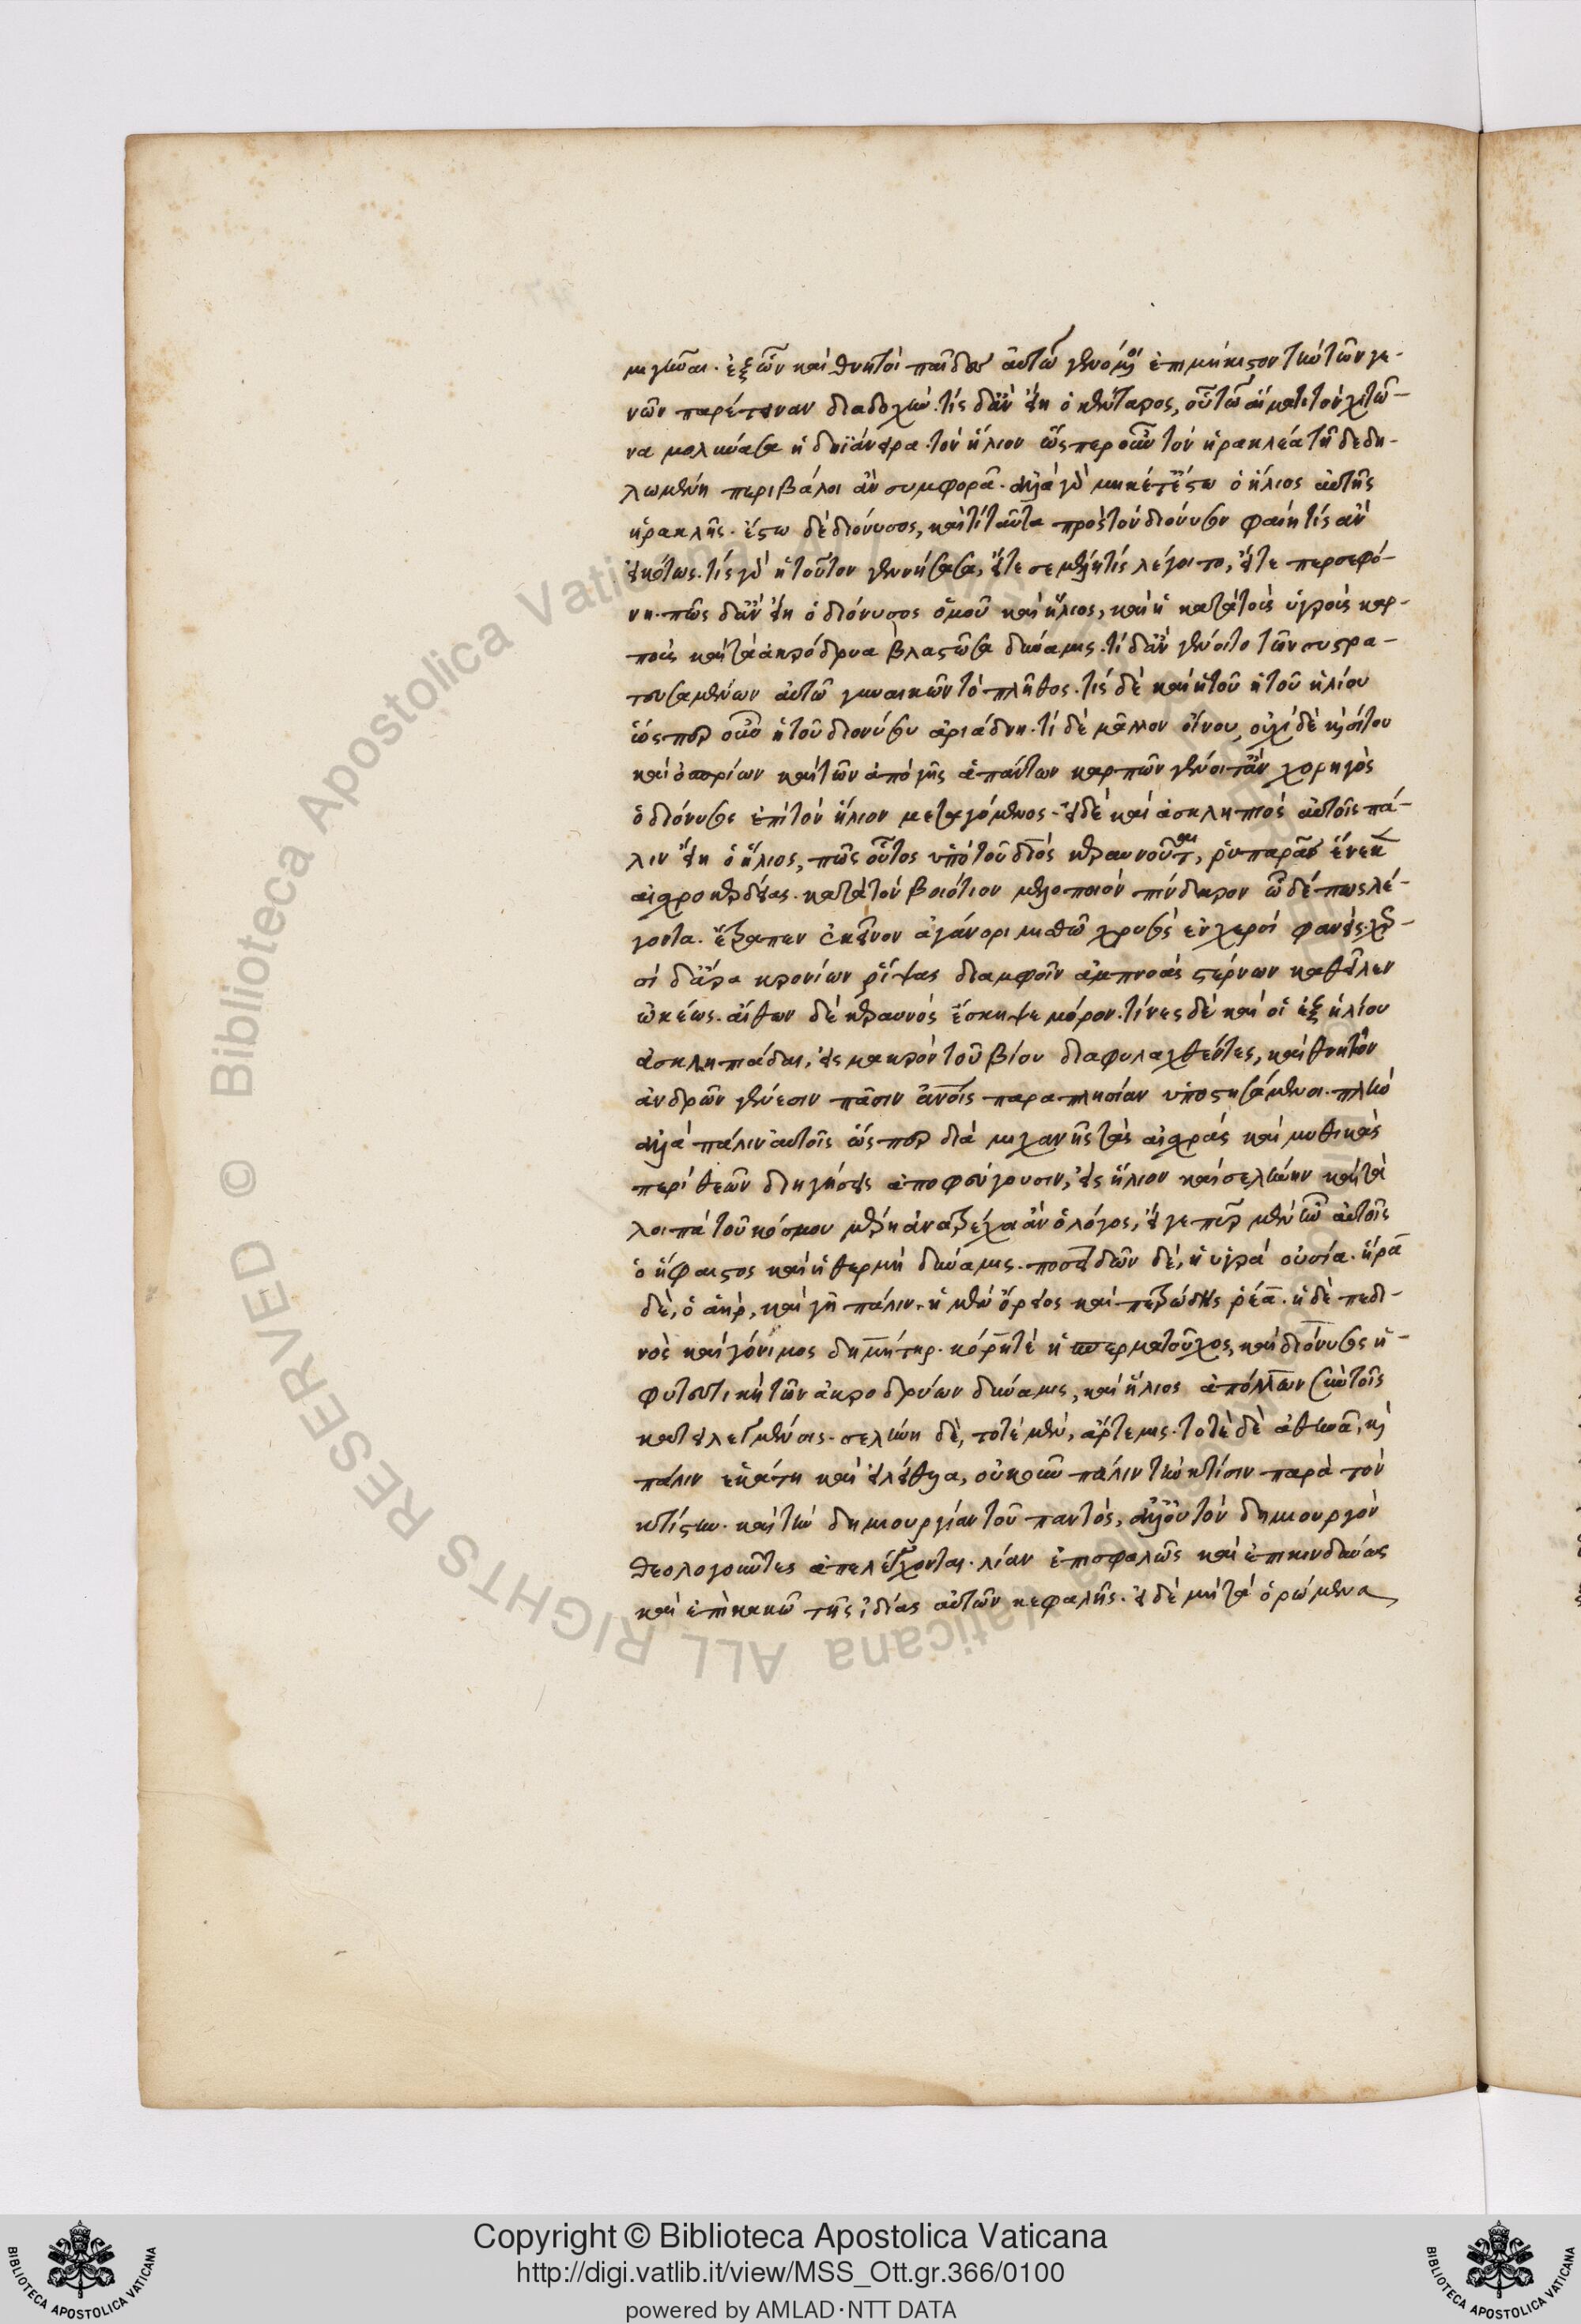 μιγῆναι. ἐξ ὧν καὶ θνητοὶ παῖδες αὐτῶν γενόμενοι ἐπιμήκιστον τὴν τῶν γε-
νῶν παρέτειναν διαδοχήν. τίς δ' ἂν εἴη ὁ κένταυρος, οὗ τῷ αἵματι τὸν χιτῶ-
να μολύνασα ἡ δηϊάνειρα τὸν ἥλιον ὥσπερ οὖν τὸν ἡρακλέα τῇ δεδη-
λωμένῃ περιβάλοι ἂν συμφορᾷ. ἀλλὰ γὰρ μηκέτ' ἔστω ὁ ἥλιος αὐτοῖς
ἡρακλῆς. ἔστω δὲ διόνυσος, καὶ τί ταῦτα πρὸς τὸν διόνυσον φαίη τίς ἂν
εἰκότως. τίς γὰρ ἡ τοῦτον γεννήσασα, εἴτε σεμέλη τίς λέγοιτο, εἴτε περσεφό-
νη. πῶς δ' ἂν εἴη ὁ διόνυσος ὁμοῦ καὶ ἥλιος, καὶ ἡ κατὰ τοὺς ὑγροὺς καρ-
ποὺς καὶ τὰ ἀκρόδρυα βλαστῶσα δύναμις. τί δ' ἂν γένοιτο τῶν συστρα-
τευσαμένων αὐτῷ γυναικῶν τὸ πλῆθος. τίς δὲ καὶ ἡ τοῦ ἡλίου
ὥσπερ οὖν ἡ τοῦ διονύσου ἀριάδνη. τί δὲ μᾶλλον οἴνου, οὐχὶ δὲ καὶ σίτου
καὶ ὀσπρίων καὶ τῶν ἀπὸ γῆς ἁπάντων καρπῶν γένοιτ' ἂν χορηγὸς
ὁ διόνυσος ἐπὶ τὸν ἥλιον μεταγόμενος. εἰ δὲ καὶ ἀσκληπιὸς αὐτοῖς πά-
λιν εἴη ὁ ἥλιος, πῶς οὗτος ὑπὸ τοῦ διὸς κεραυνοῦται, ῥυπαρᾶς ἕνεκα
αἰσχροκερδείας. κατὰ τὸν βοιώτιον μελοποιὸν πίνδαρον ὧδέ πως λέ-
γοντα. ἔτραπεν ἐκεῖνον ἀγάνορι μισθῷ χρυσὸς ἐν χερσὶ φανείς. χερ-
σὶ δ' ἄρα κρονίων ῥίψας δι' ἀμφοῖν ἀμπνοὰς στέρνων καθεῖλεν
ὠκέως. αἴθων δὲ κεραυνὸς ἔσκηψε μόρον. τίνες δὲ καὶ οἱ ἐξ ἡλίου
ἀσκληπιάδαι, εἰς μακρὸν τοῦ βίου διαφυλαχθέντες, καὶ θνητῶν
ἀνδρῶν γένεσιν πᾶσιν ἀνοις παραπλησίαν ὑποστησάμενοι. πλὴν
ἀλλὰ πάλιν αὐτοῖς ὥσπερ διὰ μηχανῆς τὰς αἰσχρὰς καὶ μυθικὰς
περὶ θεῶν διηγήσεις ἀποφεύγουσιν, εἰς ἥλιον καὶ σελήνην καὶ τὰ
λοιπὰ τοῦ κόσμου μέρη ἀνατρέχοι ἂν ὁ λόγος, εἴ γε περ μὲν ἦν αὐτοῖς
ὁ ἥφαιστος καὶ ἡ θερμὴ δύναμις. ποσειδῶν δὲ, ἡ ὑγρὰ οὐσία. ἥρα
δὲ, ὁ ἀὴρ, καὶ γῆ πάλιν. ἡ μὲν ὄρειος καὶ πετρώδης ῥέα. ἡ δὲ πεδι-
νὸς καὶ γόνιμος δημήτηρ. κόρη τὲ ἡ σπερματοῦχος, καὶ διόνυσος ἡ
φυτευτικὴ τῶν ἀκροδρύων δύναμις, καὶ ἥλιος ἀπόλλων σὺν τοῖς
κατειλεγμένοις. σελήνη δὲ, τοτὲ μὲν, ἄρτεμις. τοτὲ δὲ ἀθηνᾶ, καὶ
πάλιν ἑκάτη καὶ εἰλείθυια, οὐκοῦν πάλιν τὴν κτίσιν παρὰ τὸν
κτίστην. καὶ τὴν δημιουργίαν τοῦ παντός, ἀλλ' οὐ τὸν δημιουργὸν
θεολογοῦντες ἀπελέγχονται. λίαν ἐπισφαλῶς καὶ ἐπικινδύνως
καὶ ἐπὶ κακῷ τῆς ἰδίας αὐτῶν κεφαλῆς. εἰ δὲ μὴ τὰ ὁρώμενα
Copyright © Biblioteca Apostolica Vaticana
http://digi.vatlib.it/view/MSS_Ott.gr.366/0100
powered by AMLAD·NTT DATA